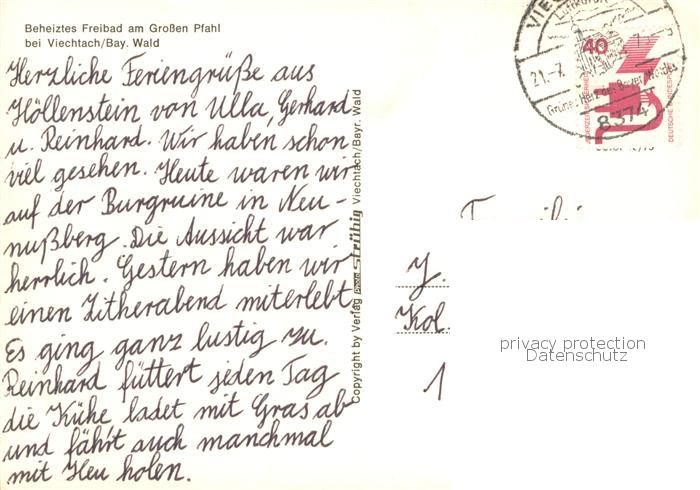 Beheiztes Freibad am Großen Pfahl
bei Viechtach/Bay. Wald
Herzliche Feriengrüße aus
Höllenstein von Ulla, Gerhard
u. Reinhard. Wir haben schon
viel gesehen. Heute waren wir
auf der Burgruine in Neu-
nußberg. Die Aussicht war
herrlich. Gestern haben wir
einen Zitherabend miterlebt.
Es ging ganz lustig zu.
Reinhard füttert jeden Tag
die Kühe ladet mit Gras ab
und fährt auch manchmal
mit Heu holen.
Copyright by Verlag Strübig Viechtach/Bayr. Wald
Luftkurort
21.-7.
Grünes Herz des Bayer. Waldes
8374
40
DEUTSCHE BUNDESPOST
J.
Kol.
1
privacy protection
Datenschutz